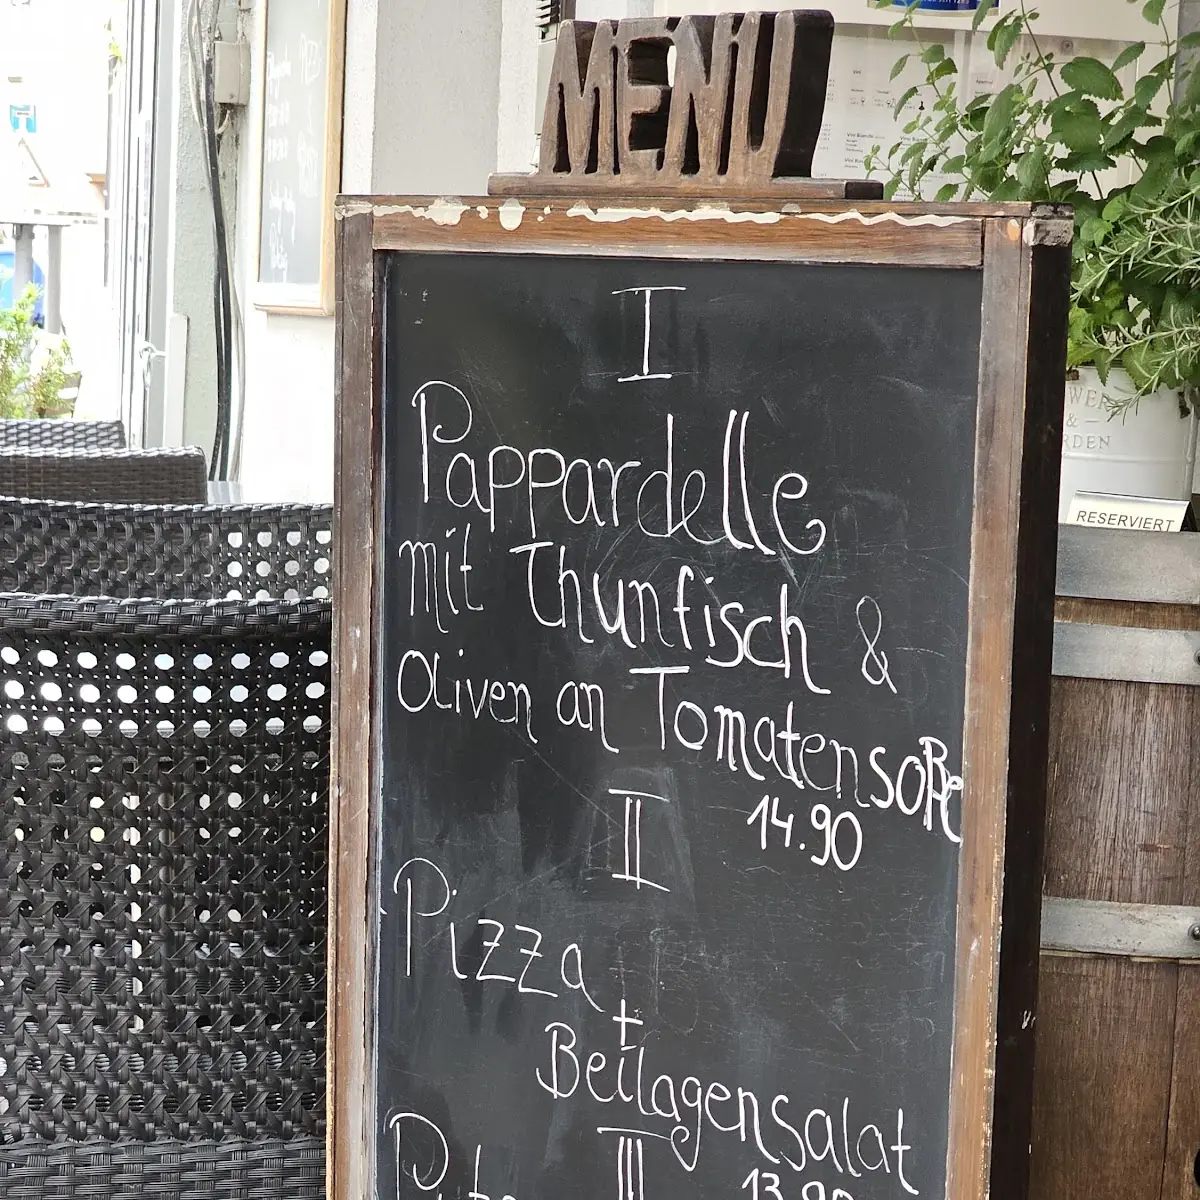 MENU
I
Pappardelle
mit Thunfisch &
Oliven an Tomatensoße
14.90
II
Pizza
+
Beilagensalat
III
13.90
RESERVIERT